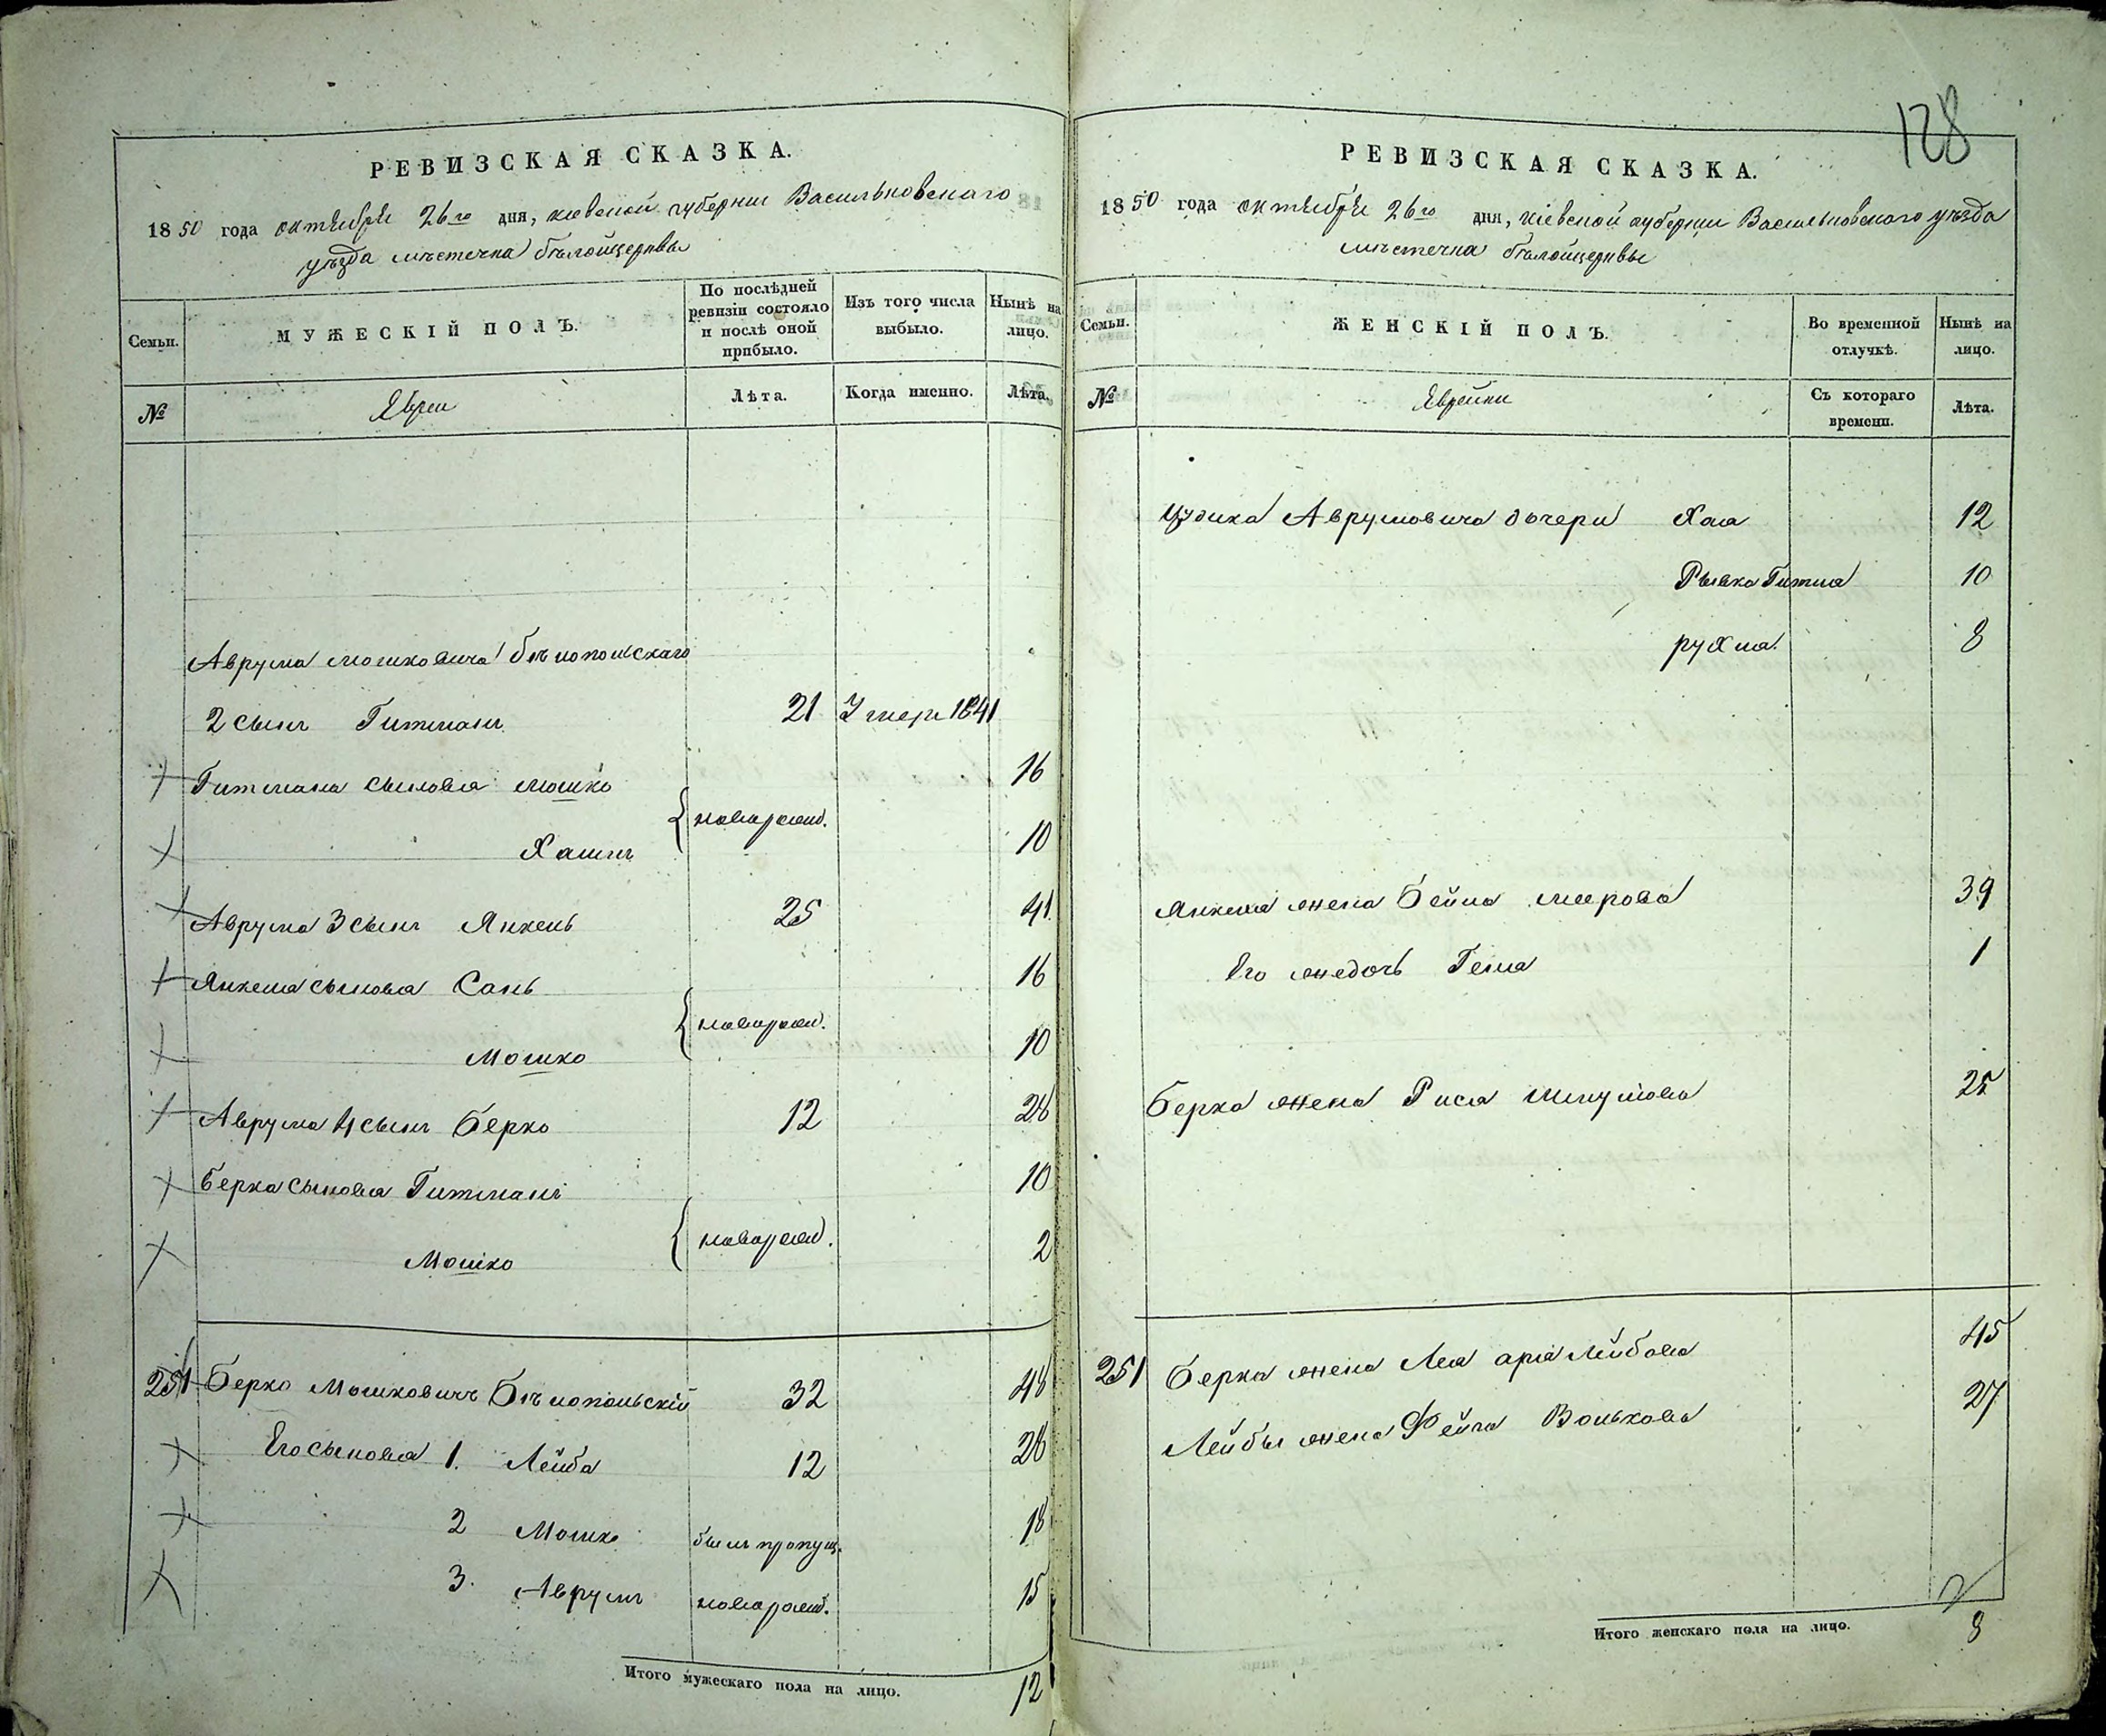 РЕВИЗСКАЯ СКАЗКА.
1850 года октября 26го дня, киевской губернии Васильковскаго
уѣзда мѣстечка бѣлойцеркви
Семьи.
МУЖЕСКІЙ ПОЛЪ.
По послѣдней ревизіи состояло и послѣ оной прибыло.
Изъ того числа выбыло.
Нынѣ на лицо.
№
Евреи
Лѣта.
Когда именно.
Лѣта.
Аврума мошковича бѣлопольскаго
2 сынъ Гитманъ 21 Умеръ 1841
Гитмана сыновья мошко 16
новорожд.
Хаимъ 10
Аврума 3 сынъ Янкель 25 41
Янкеля сыновья Сань 16
новорожд.
Мошко 10
Аврума 4 сынъ Берко 12 28
Берка сыновья Гитманъ 10
новорожд.
Мошко 2
251 Берко Мошковичъ Бѣлопольскій 32 48
Его сыновья 1. Лейба 12 28
2 Мошко былъ пропущ. 18
3. Аврумъ новорожд. 15
Итого мужескаго пола на лицо. 12
128
РЕВИЗСКАЯ СКАЗКА.
1850 года октября 26го дня, кіевской губерніи Васильковскаго уѣзда
мѣстечка бѣлойцеркви
Семьи.
ЖЕНСКІЙ ПОЛЪ.
Во временной отлучкѣ.
Нынѣ на лицо.
№
Еврейки
Съ котораго времени.
Лѣта.
Аврумовича дочери Хая 12
Рывка Гитля 10
рухля 8
Янкеля жена Бейла меерова 39
Его жедочь Геня 1
Берка жена Рися 25
251 Берка жена Лея Лейбова 45
Лейбы жена Фейга Волькова 27
Итого женскаго пола на лицо. 8